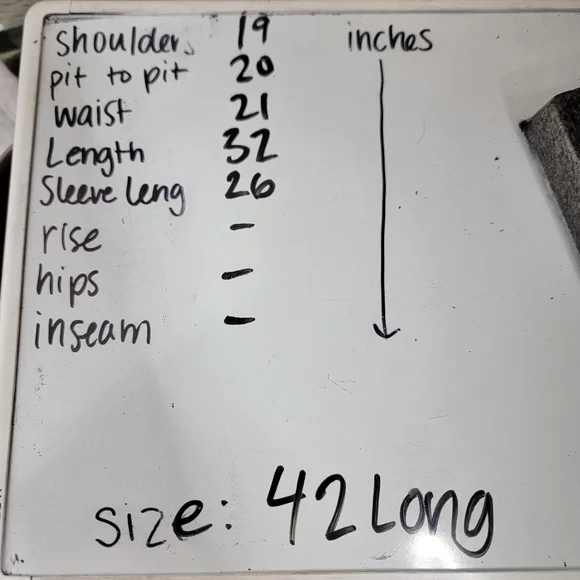 shoulder. 19 inches
pit to pit 20
waist 21
Length 32
Sleeve leng 26
rise -
hips -
inseam -
size: 42 Long